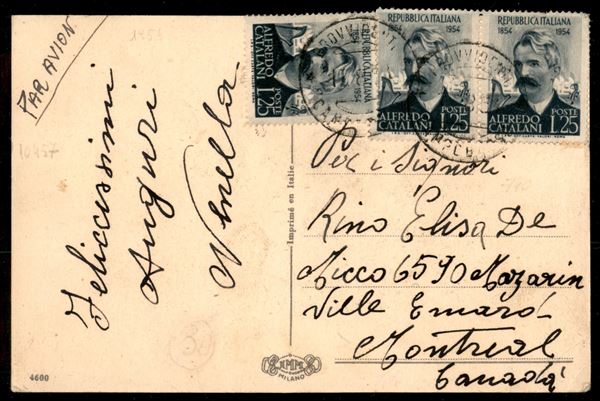 PAR AVION
1954
10457
Feliccessimi
Auguri
Nenella
4600
Imprimé en Italie
MILANO
1854
REPUBBLICA ITALIANA
1954
ALFREDO
CATALANI
POSTE
L.25
REPUBBLICA ITALIANA
1854 1954
ALFREDO POSTE
CATALANI L.25
REPUBBLICA ITALIANA
1854 1954
ALFREDO POSTE
CATALANI L.25
Per i Signori
Rino Elisa De
Micco 6590 Mazarin
Ville Emard-
Montreal
Canadà